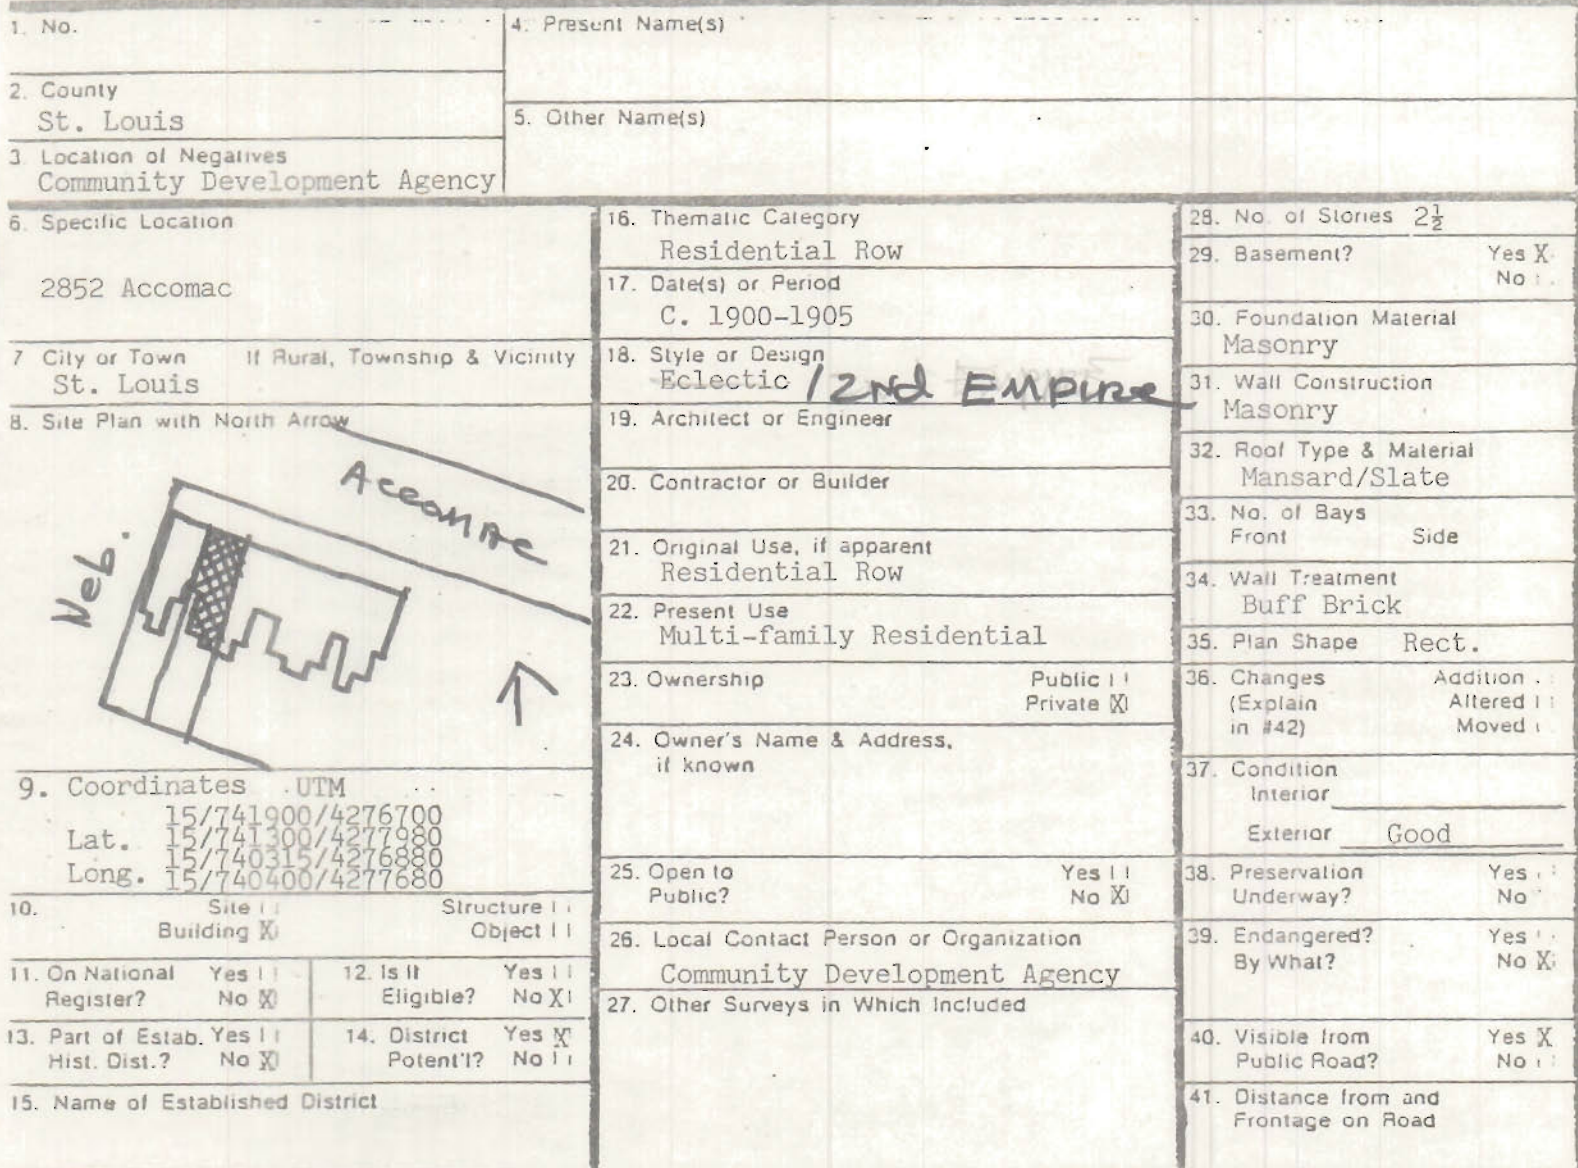 1. No.
2. County
St. Louis
3. Location of Negatives
Community Development Agency
4. Present Name(s)
5. Other Name(s)
6. Specific Location
2852 Accomac
7 City or Town If Rural, Township & Vicinity
St. Louis
8. Site Plan with North Arrow
Accomac
Neb.
9. Coordinates UTM
15/741900/4276700
Lat. 15/741300/4277980
15/740315/4276880
Long. 15/740400/4277680
10. Site Structure
Building X Object
11. On National Yes
Register? No X
12. Is It Yes
Eligible? No X
13. Part of Estab. Yes
Hist. Dist.? No X
14. District Yes X
Potent'l? No
15. Name of Established District
16. Thematic Category
Residential Row
17. Date(s) or Period
C. 1900-1905
18. Style or Design
Eclectic / 2nd Empire
19. Architect or Engineer
20. Contractor or Builder
21. Original Use, if apparent
Residential Row
22. Present Use
Multi-family Residential
23. Ownership Public
Private X
24. Owner's Name & Address,
if known
25. Open to Yes
Public? No X
26. Local Contact Person or Organization
Community Development Agency
27. Other Surveys in Which Included
28. No. of Stories 2½
29. Basement? Yes X
No
30. Foundation Material
Masonry
31. Wall Construction
Masonry
32. Roof Type & Material
Mansard/Slate
33. No. of Bays
Front Side
34. Wall Treatment
Buff Brick
35. Plan Shape Rect.
36. Changes Addition
(Explain Altered
in #42) Moved
37. Condition
Interior
Exterior Good
38. Preservation Yes
Underway? No
39. Endangered? Yes
By What? No X
40. Visible from Yes X
Public Road? No
41. Distance from and
Frontage on Road